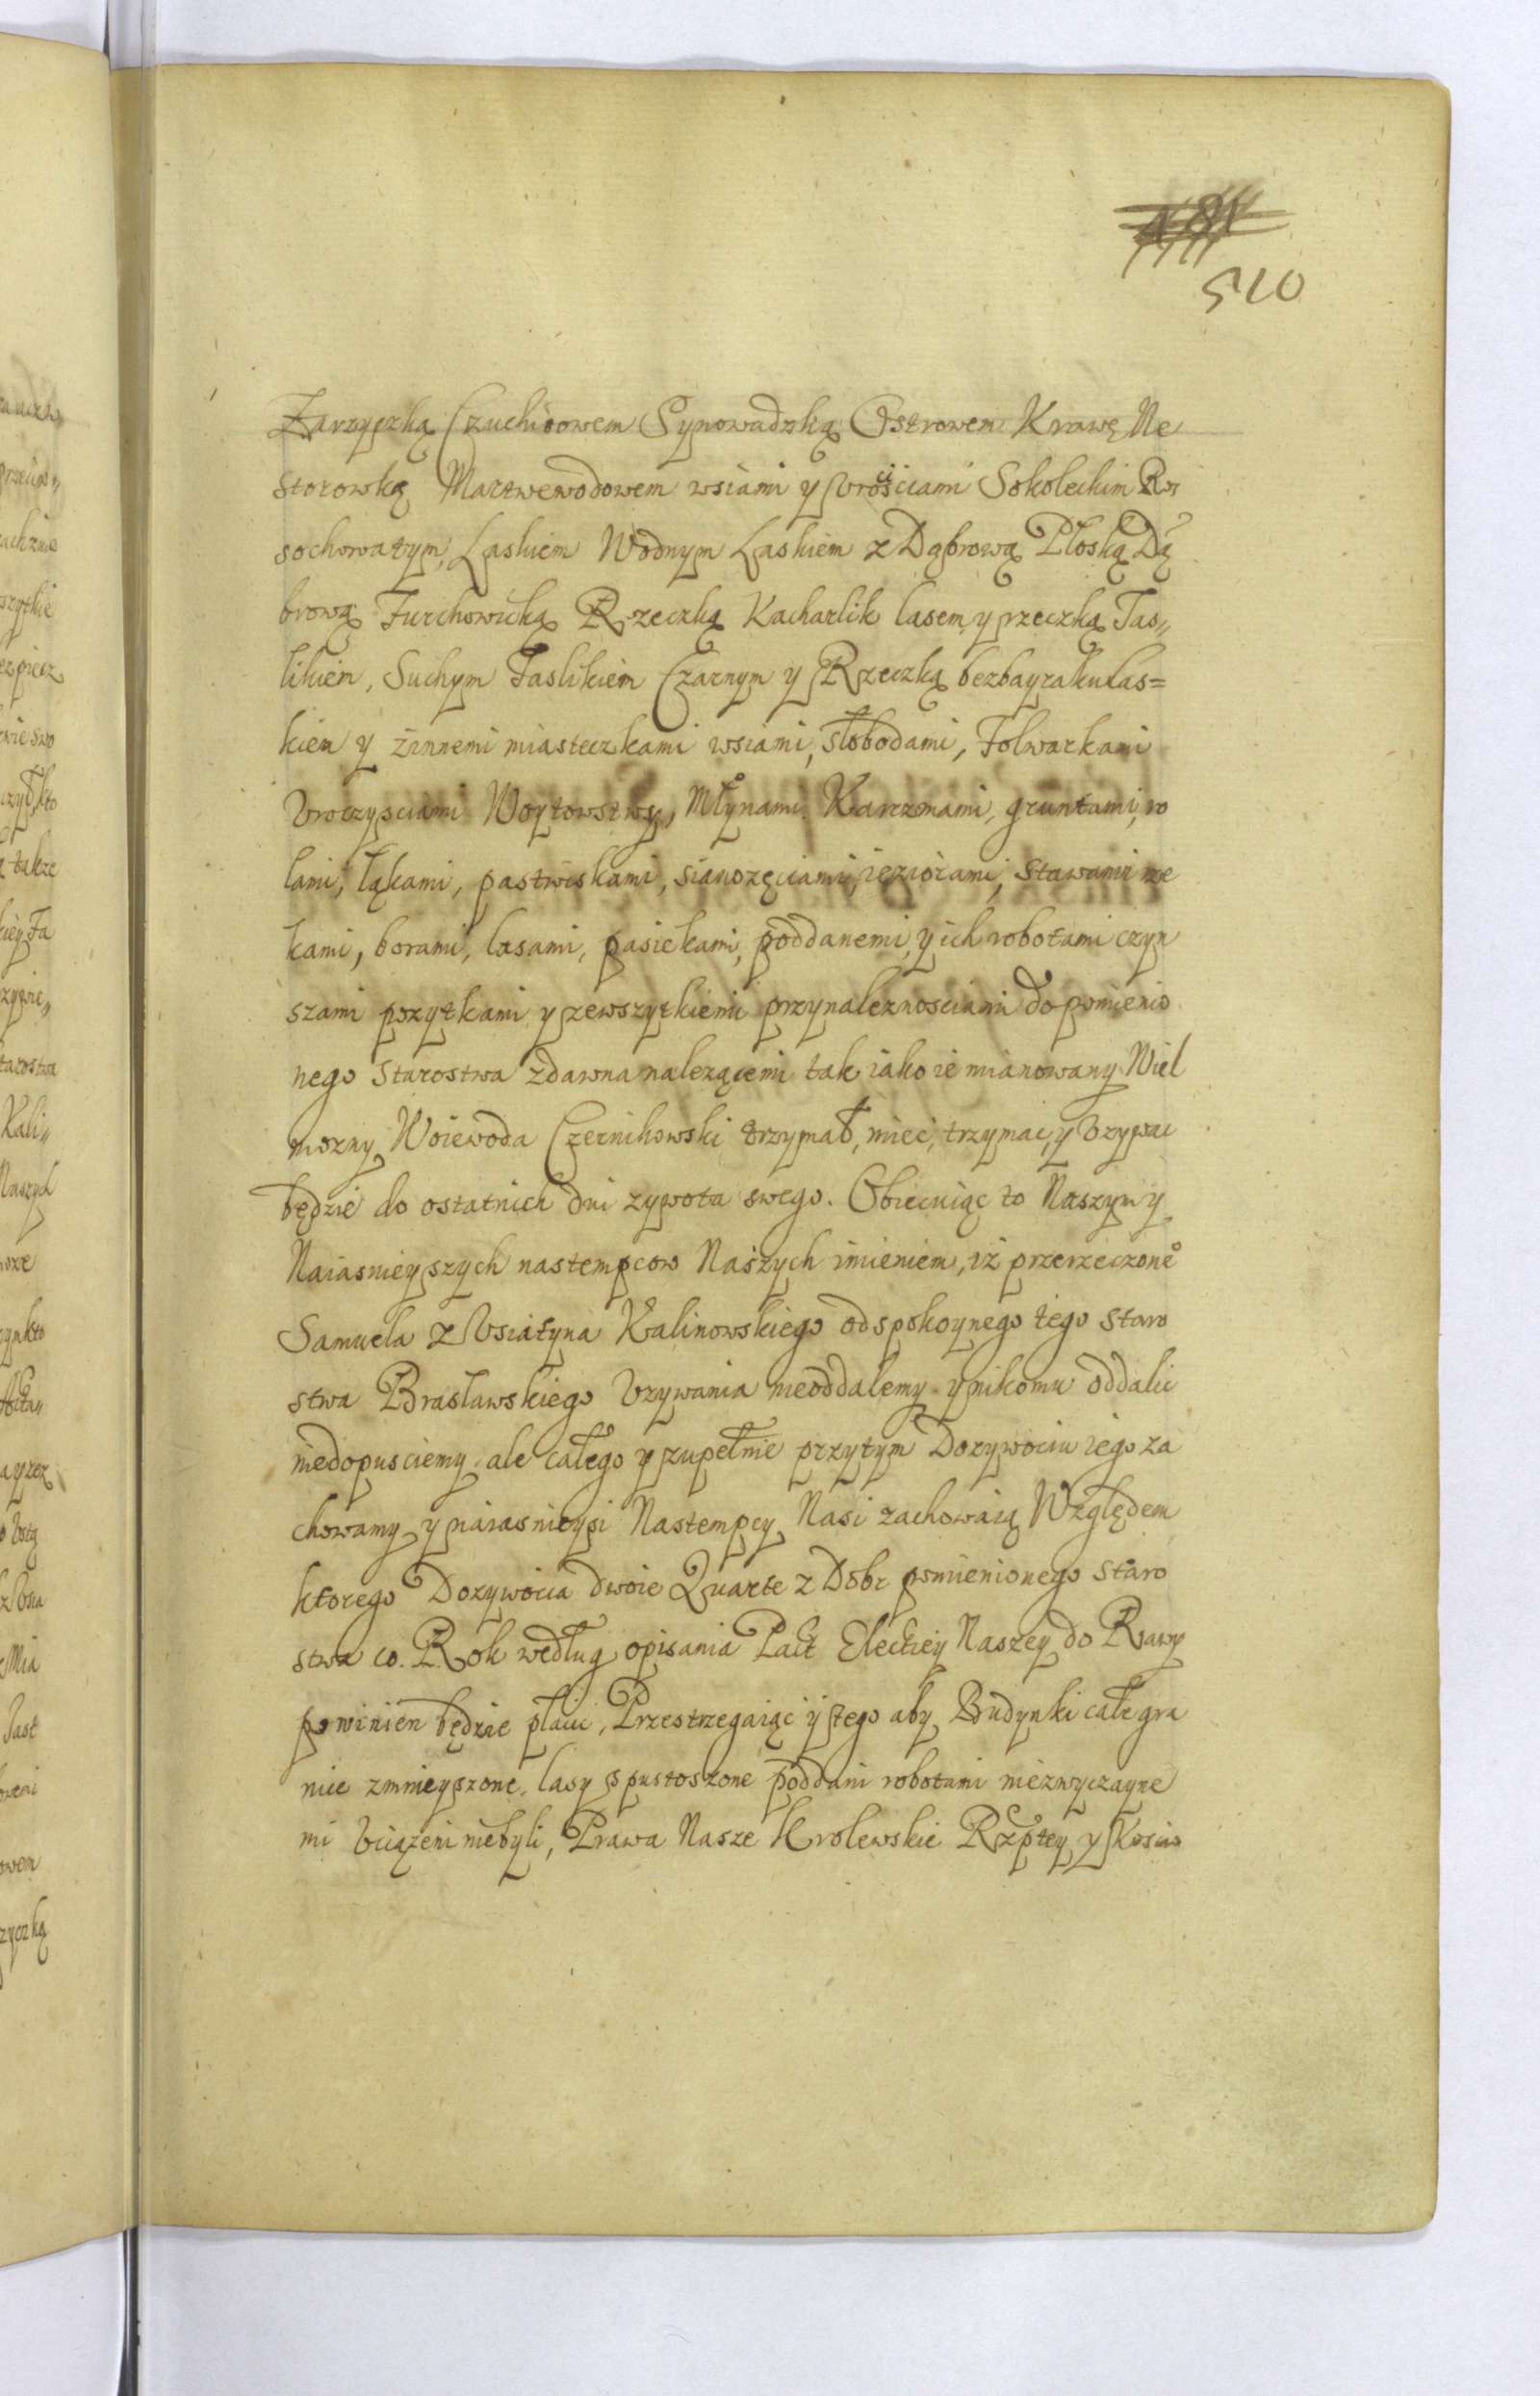 510
Zarzyczką Czuchrowem Synowadzką Ostrowem Krawę Ne
storowką Martwewodowem wsiami y Vrościami Sokoleckim Ro
sochowatym, Laskiem Wodnym Laskiem z Dąbrową Płoską Dą
brową Jurchowicką Rzeczką Kacharlik lasem y rzeczką Tas„
likiem, Suchym Taslikiem Czarnym y Rzeczką bezbayrakulas=
kiem y zinnemi miasteczkami wsiami, słobodami, Folwarkami
Vroczysciami Woytowstwy, Młynami, Karczmami, gruntami, ro
lami, łąkami, pastwiskami, sianozęciami, ieziorami, Stawami rze
kami, borami, lasami, pasiekami, poddanemi, y ich robotami czyn
szami pozytkami y zewszytkiemi przynaleznosciami do pomienio
nego Starostwa zdawna nalezącemi tak iako ie mianowany Wiel
mozny Woiewoda Czernihowski trzymał, miec, trzymac, y Vzywac
będzie do ostatnich dni zywota swego. Obiecuiąc to Naszym y
Naiasnieyszych nastempcow Naszych imieniem, iż przerzeczone°
Samuela z Vsiatyna Kalinowskiego odspokoynego tego Staro
stwa Brasławskiego Vzywania nieoddalemy y nikomu oddalic
niedopusciemy, ale całego y zupełnie przytym Dozywociu iego za
chowamy y naiasnieysi Nastempcy Nasi zachowaią Względem
ktorego Dozywocia dwoie Quarte z Dobr pomienionego Staro
stwa co Rok według opisania Pact Electiey Naszey do Rawy
powinien będzie płacic, Przestrzegaiąc y tego aby Budynki całe gra
nice zmnieyszone, lasy spustoszone poddani robotami niezwyczayne
mi Vciązeni niebyli, Prawa Nasze Krolewskie Rzptey y Koscio